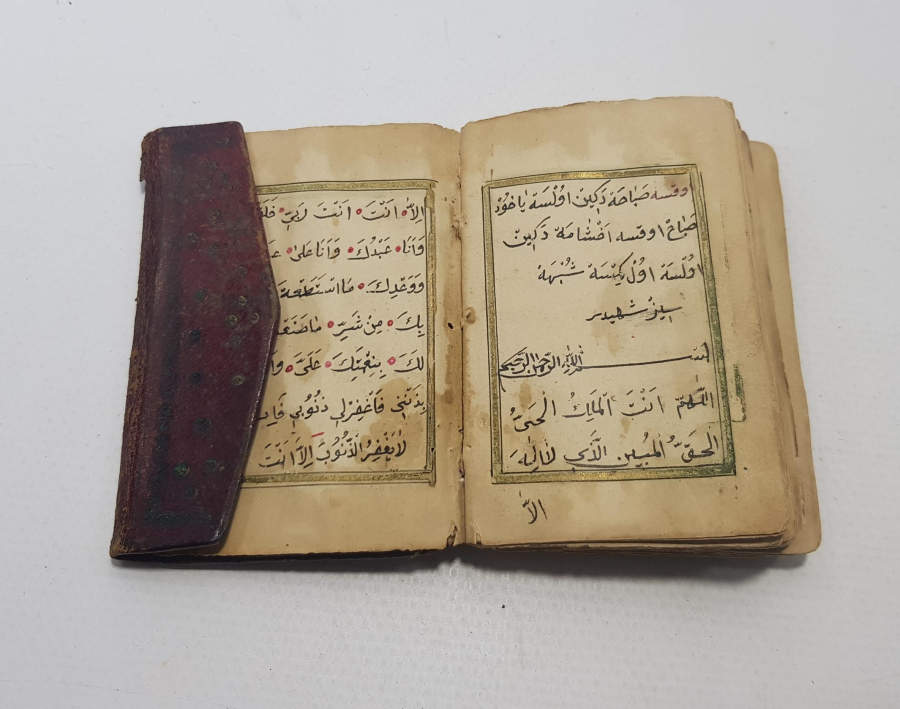 وقسه صَبَاحَه دَكِينْ اولْسَه يَاخُودْ
صَبَاحْ اوقسه اَخْشَامَه دَكِينْ
اولْسَه اولْ كِمْسَه شُبْهَه
سِزْ شهيددر
بسم الله الرحمن الرحيم
اَللّٰهُمَّ اَنْتَ الْمَلِكُ الْحَىُّ
الْحَقُّ الْمُبِينُ الَّذِي لَا اِلٰهَ
اِلاَّ
اِلاَّ اَنْتَ اَنْتَ رَبِّي
وَاَنَا عَبْدُكَ وَاَنَا عَلٰى
وَوَعْدِكَ مَا اسْتَطَعْتُ
بِكَ مِنْ شَرِّ مَا
لَكَ بِنِعْمَتِكَ عَلَىَّ
بِذَنْبِي فَاغْفِرْلِي ذُنُوبِي
لاَ يَغْفِرُ الذُّنُوبَ اِلاَّ اَنْتَ